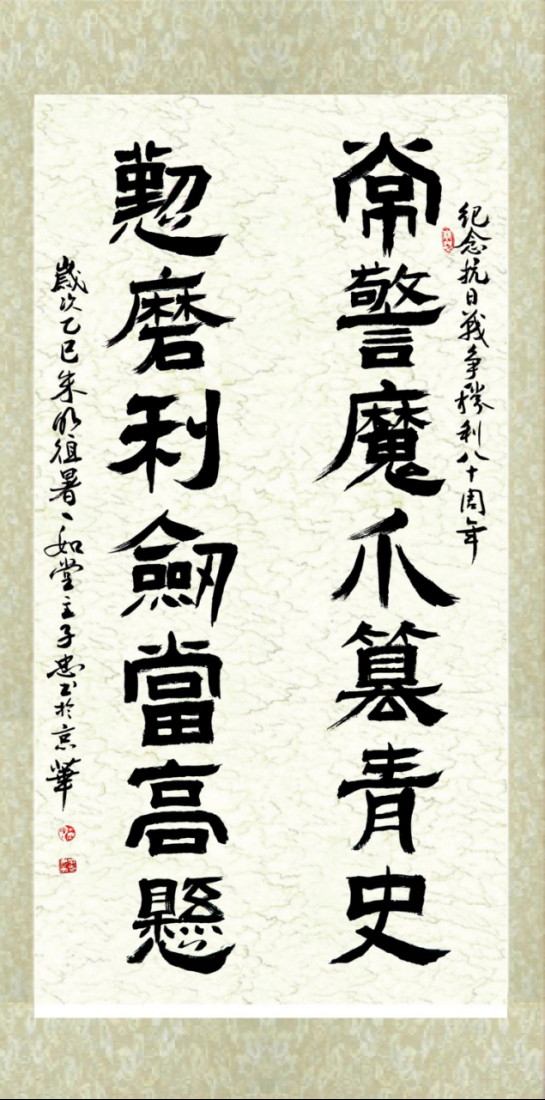 紀念抗日戰争勝利八十周年
常警魔爪篡青史
懃磨利劒當高懸
歲次乙巳朱明徂暑一如堂主子忠书於京華